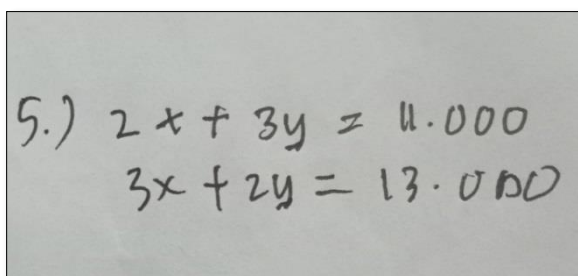 5.) 2x + 3y = 11.000
3x + 2y = 13.000